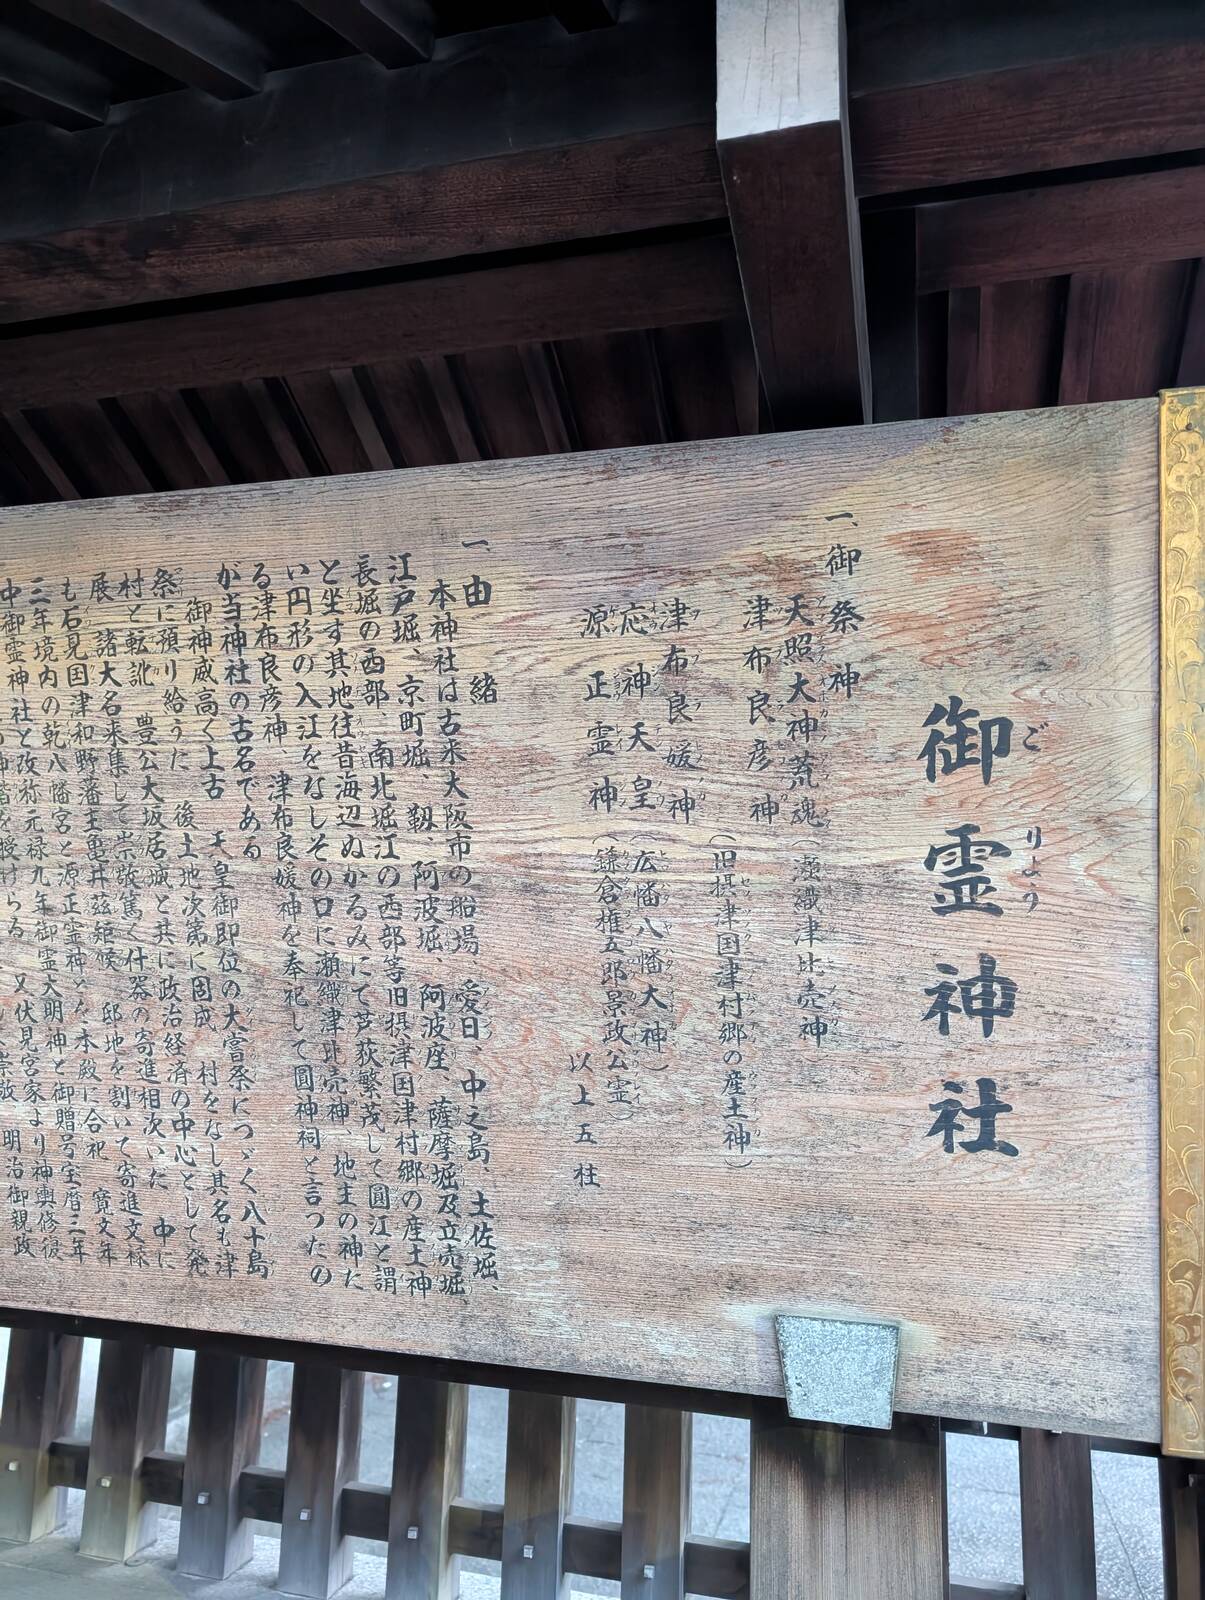 御霊神社
ごりょう
一、御祭神
天照大神荒魂(瀬織津比売神
津布良彦神
(旧摂津国津村郷の産土神)
津布良媛神
応神天皇(広幡八幡大神)
源正霊神(鎌倉権五郎景政公霊)
以上五柱
一、由緒
本神社は古来大阪市の船場、愛日、中之島、土佐堀、
江戸堀、京町堀、靱、阿波堀、阿波座、薩摩堀及立売堀、
長堀の西部、南北堀江の西部等旧摂津国津村郷の産土神
と坐す其地往昔海辺ぬかるみにて芦荻繁茂して圓江と謂
い円形の入江をなしその口に瀬織津比売神、地主の神た
る津布良彦神、津布良媛神を奉祀して圓神祠と言つたの
が当神社の古名である
御神威高く上古 天皇御即位の大嘗祭につゞく八十島
祭に預り給うた 後土地次第に固成 村をなし其名も津
村と転訛 豊公大坂居城と共に政治経済の中心として発
展 諸大名来集して崇敬篤く什器の寄進相次いだ 中に
も石見国津和野藩主亀井茲矩候 邸地を割いて寄進文禄
三年境内の乾八幡宮と源正霊神とを本殿に合祀 寛文年
中御霊神社と改称元禄九年御霊大明神と御贈号宝暦三年
授けらる 又伏見宮家より神輿修復
崇敬 明治御親政